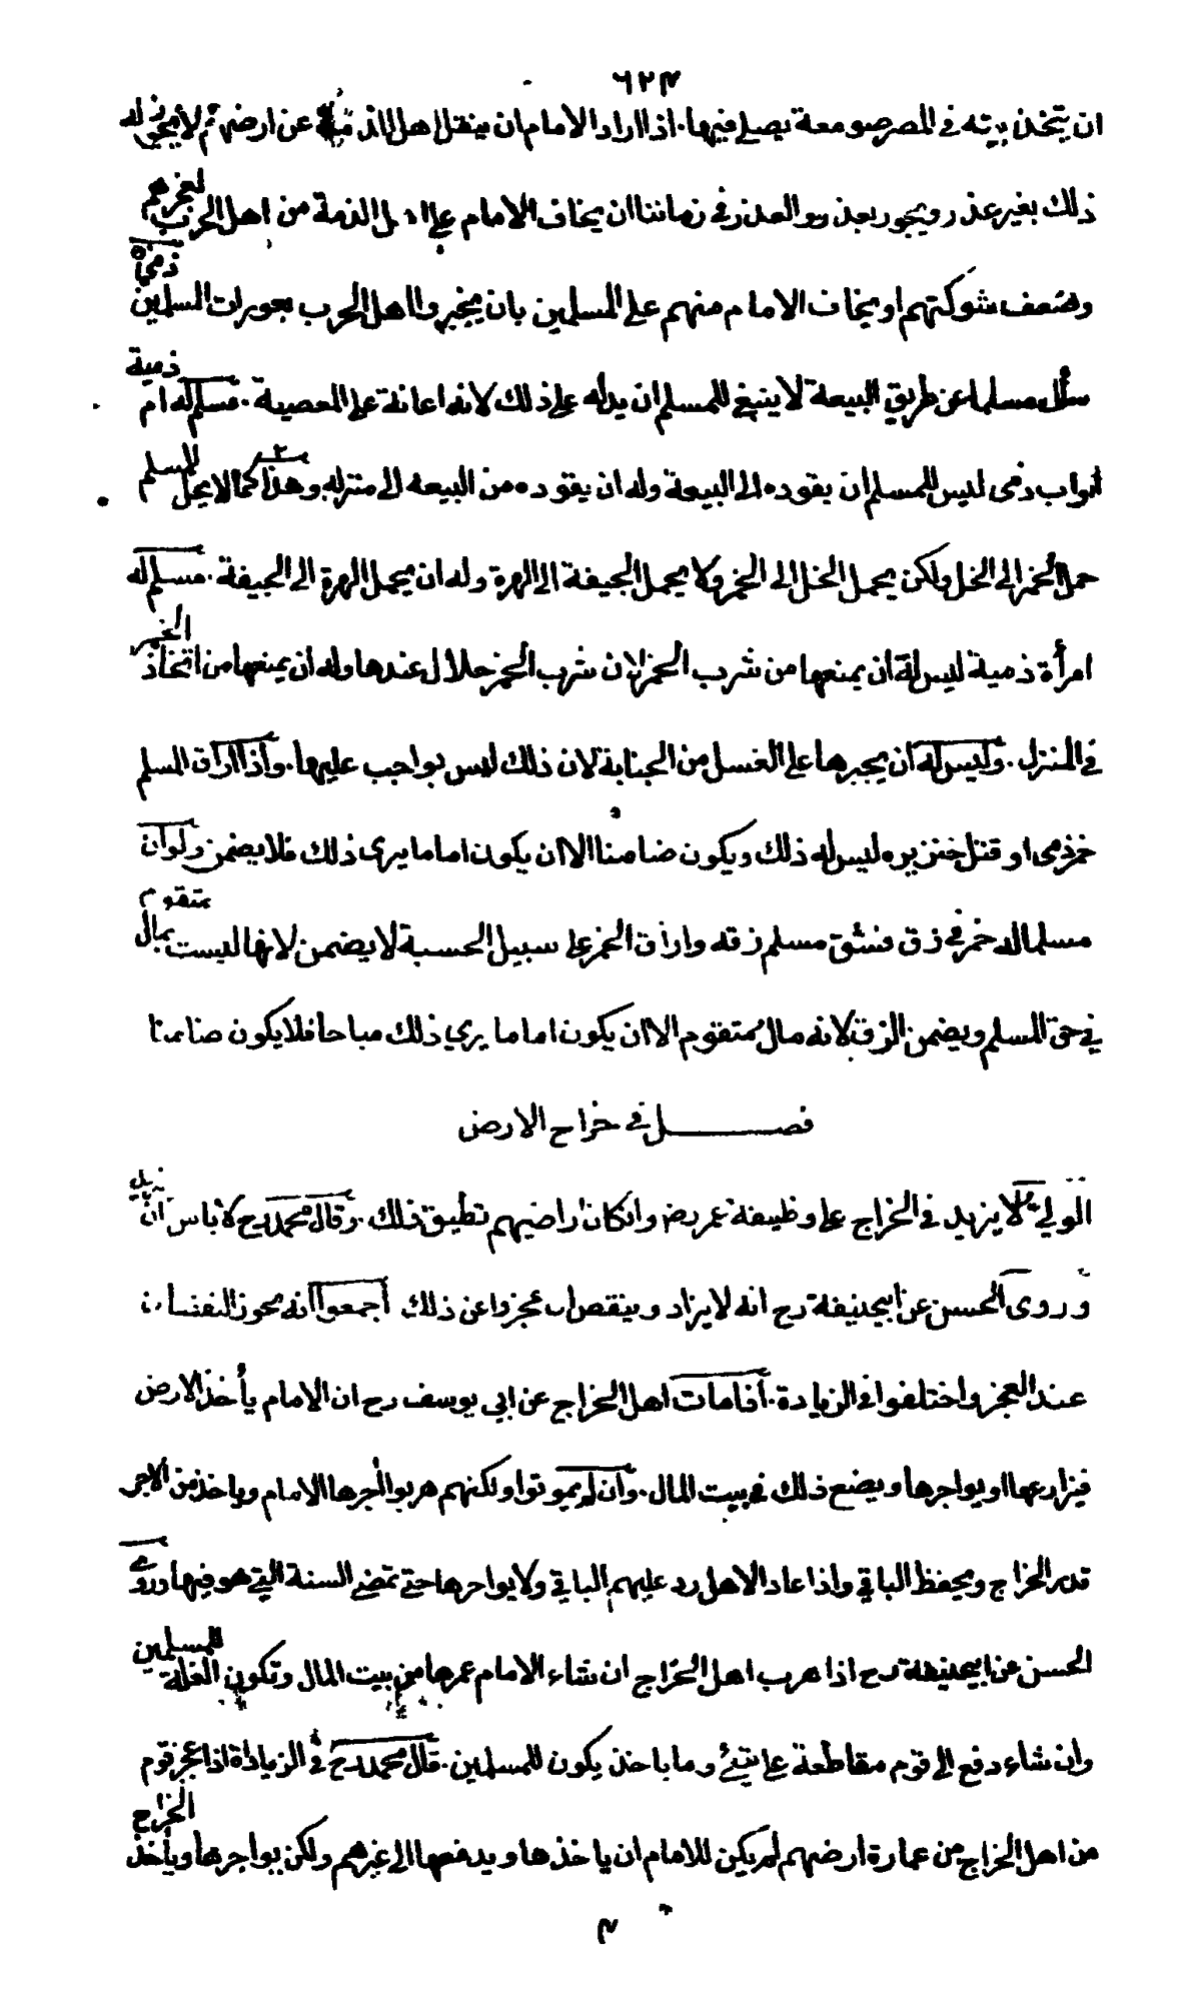 ٦٢٣
ان يتخذ بيته في المصر صومعة يصلي فيها . اذا اراد الامام ان ينقل اهل الذمة عن ارضهم لا يجوز له
ذلك بغير عذر ويجوز بعذر والعذر في زماننا ان يخاف الامام على اهل الذمة من اهل الحرب لعجزهم
وضعف شوكتهم او يخاف الامام منهم على المسلمين بان يخبروا اهل الحرب بعورات المسلمين ذمي
سأل مسلما عن طريق البيعة لا ينبغي للمسلم ان يدله على ذلك لانه اعانة على المعصية . مسلم له ام ذمية
او اب ذمي ليس للمسلم ان يقوده الى البيعة وله ان يقوده من البيعة الى منزله وهذا كما لا يحل للمسلم
حمل الخمر الى الخل ولكن يحمل الخل الى الخمر ولا يحمل الجيفة الى الهرة وله ان يحمل الهرة الى الجيفة . مسلم له
امرأة ذمية ليس له ان يمنعها من شرب الخمر لان شرب الخمر حلال عندها وله ان يمنعها من اتخاذ الخمر
في المنزل . وليس له ان يجبرها على الغسل من الجنابة لان ذلك ليس بواجب عليها . واذا اراق المسلم
خمر ذمي او قتل خنزيره ليس له ذلك ويكون ضامنا الا ان يكون اماما يرى ذلك فلا يضمن ولو ان
مسلما له خمر في زق فشق مسلم زقه واراق الخمر على سبيل الحسبة لا يضمن لانها ليست بمال متقوم
في حق المسلم ويضمن الزق لانه مال متقوم الا ان يكون اماما يري ذلك مباحا فلا يكون ضامنا
فصل في خراج الارض
الوالي لا يزيد في الخراج على وظيفة عمر رض وان كان اراضيهم تطيق ذلك . وقال محمد رح لا باس ان يزيد
وروى الحسن عن ابيحنيفة رح انه لا يزاد وينقص ان عجزوا عن ذلك اجمعوا انه يجوز النقصان
عند العجز واختلفوا في الزيادة . اذا مات اهل الخراج عن ابي يوسف رح ان الامام يأخذ الارض
فيزارعها او يواجرها ويضع ذلك في بيت المال . وان لم يموتوا ولكنهم هربوا أجرها الامام وياخذ من الاجر
قدر الخراج ويحفظ الباقي واذا عاد الاهل رد عليهم الباقي ولا يواجرها حتى تمضي السنة التي هو فيها وروى
الحسن عن ابيحنيفة رح اذا هرب اهل الخراج ان شاء الامام عمرها من بيت المال وتكون الغلة للمسلمين
وان شاء دفع الى قوم مقاطعة على شئ وما ياخذ يكون للمسلمين . قال محمد رح في الزيادة اذا عجز قوم
من اهل الخراج من عمارة ارضهم لم يكن للامام ان ياخذها ويدفعها الى غيرهم ولكن يواجرها ويأخذ الخراج